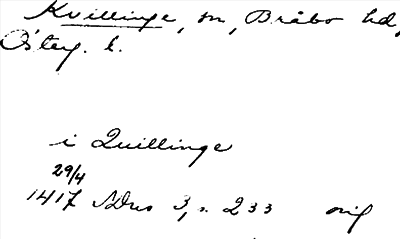 Kvillinge, sn, Bråbo hd,
Östag. l.
i Quillinge
29/4
1417 SDns 3, s. 233 orig